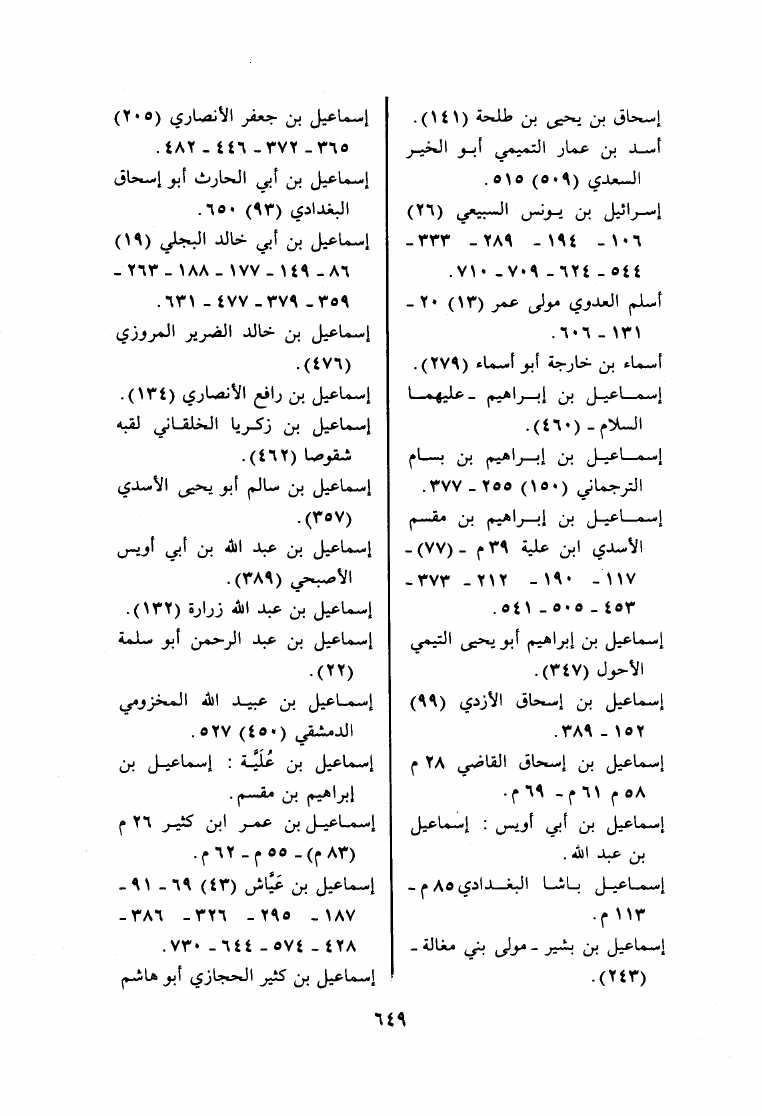 إسحاق بن يحيى بن طلحة (١٤١).
أسد بن عمار التميمي أبو الخير
السعدي (٥٠٩) ٥١٥.
إسرائيل بن يونس السبيعي (٢٦)
١٠٦ - ١٩٤ - ٢٨٩ - ٣٣٣ -
٥٤٤ - ٦٢٤ - ٧٠٩ - ٧١٠.
أسلم العدوي مولى عمر (١٣) ٢٠ -
١٣١ - ٦٠٦.
أسماء بن خارجة أبو أسماء (٢٧٩).
إسماعيل بن إبراهيم - عليهما
السلام - (٤٦٠).
إسماعيل بن إبراهيم بن بسام
الترجماني (١٥٠) ٢٥٥ - ٣٧٧.
إسماعيل بن إبراهيم بن مقسم
الأسدي ابن علية ٣٩ م - (٧٧) -
١١٧ - ١٩٠ - ٢١٢ - ٣٧٣ -
٤٥٣ - ٥٠٥ - ٥٤١.
إسماعيل بن إبراهيم أبو يحيى التيمي
الأحول (٣٤٧).
إسماعيل بن إسحاق الأزدي (٩٩)
١٥٢ - ٣٨٩.
إسماعيل بن إسحاق القاضي ٢٨ م
٥٨ م ٦١ م - ٦٩ م.
إسماعيل بن أبي أويس : إسماعيل
بن عبد الله.
إسماعيل باشا البغدادي ٨٥ م -
١١٣ م.
إسماعيل بن بشير - مولى بني مغالة -
(٢٤٣).
إسماعيل بن جعفر الأنصاري (٢٠٥)
٣٦٥ - ٣٧٢ - ٤٤٦ - ٤٨٢.
إسماعيل بن أبي الحارث أبو إسحاق
البغدادي (٩٣) ٦٥٠.
إسماعيل بن أبي خالد البجلي (١٩)
٨٦ - ١٤٩ - ١٧٧ - ١٨٨ - ٢٦٣ -
٣٥٩ - ٣٧٩ - ٤٧٧ - ٦٣١.
إسماعيل بن خالد الضرير المروزي
(٤٧٦).
إسماعيل بن رافع الأنصاري (١٣٤).
إسماعيل بن زكريا الخلقاني لقبه
شقوصا (٤٦٢).
إسماعيل بن سالم أبو يحيى الأسدي
(٣٥٧).
إسماعيل بن عبد الله بن أبي أويس
الأصبحي (٣٨٩).
إسماعيل بن عبد الله زرارة (١٣٢).
إسماعيل بن عبد الرحمن أبو سلمة
(٢٢).
إسماعيل بن عبيد الله المخزومي
الدمشقي (٤٥٠) ٥٢٧.
إسماعيل بن عُلَيَّة : إسماعيل بن
إبراهيم بن مقسم.
إسماعيل بن عمر ابن كثير ٢٦ م
(٨٣ م) - ٥٥ م - ٦٢ م.
إسماعيل بن عَيَّاش (٤٣) ٦٩ - ٩١ -
١٨٧ - ٢٩٥ - ٣٢٦ - ٣٨٦ -
٤٢٨ - ٥٧٤ - ٦٤٤ - ٧٣٠.
إسماعيل بن كثير الحجازي أبو هاشم
٦٤٩